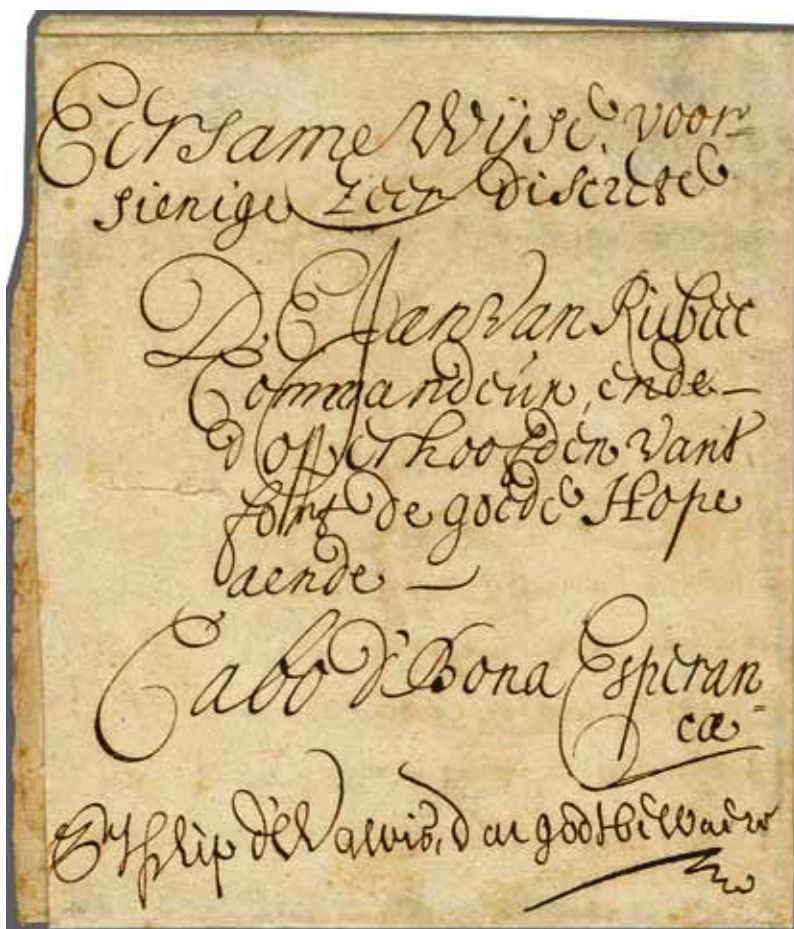 Eersame Wijse, voor=
sienige Zeer discrete
D. E. Jan Van Riebeec
Commandeur, ende—
d'opperhoofden Vant
fort de goede Hope
aende —
Cabo d' Bona Esperan=
cæ
Schip d' Walvis, dat godt bewaere